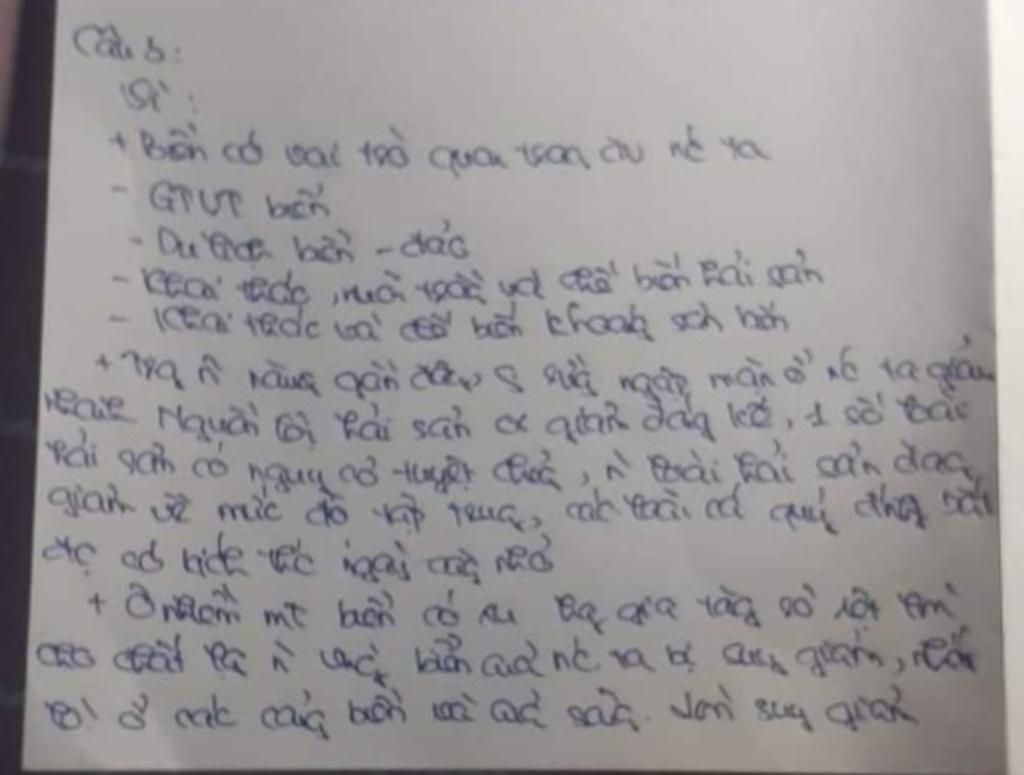 Câu 5:
Vì:
+ Biển có vai trò quan trọng đv nc ta
- GTVT biển
- Du lịch biển - đảo
- Khai thác, nuôi trồng và chế biến hải sản
- Khai thác và chế biến khoáng sản biển
+ Trg n năm gần đây, S rừng ngập mặn ở nc ta giảm
nhanh. Nguồn lợi hải sản cx giảm đáng kể, 1 số loài
hải sản có nguy cơ tuyệt chủng, n loài hải sản đang
giảm về mức độ tập trung, các loài cá quý đánh bắt
đc có kích thước ngày càng nhỏ
+ Ô nhiễm mt biển có xu hg gia tăng
cho chất lg n vùng biển của nc ta bị suy giảm, nhất
là ở các cảng biển và cửa sông. suy giảm